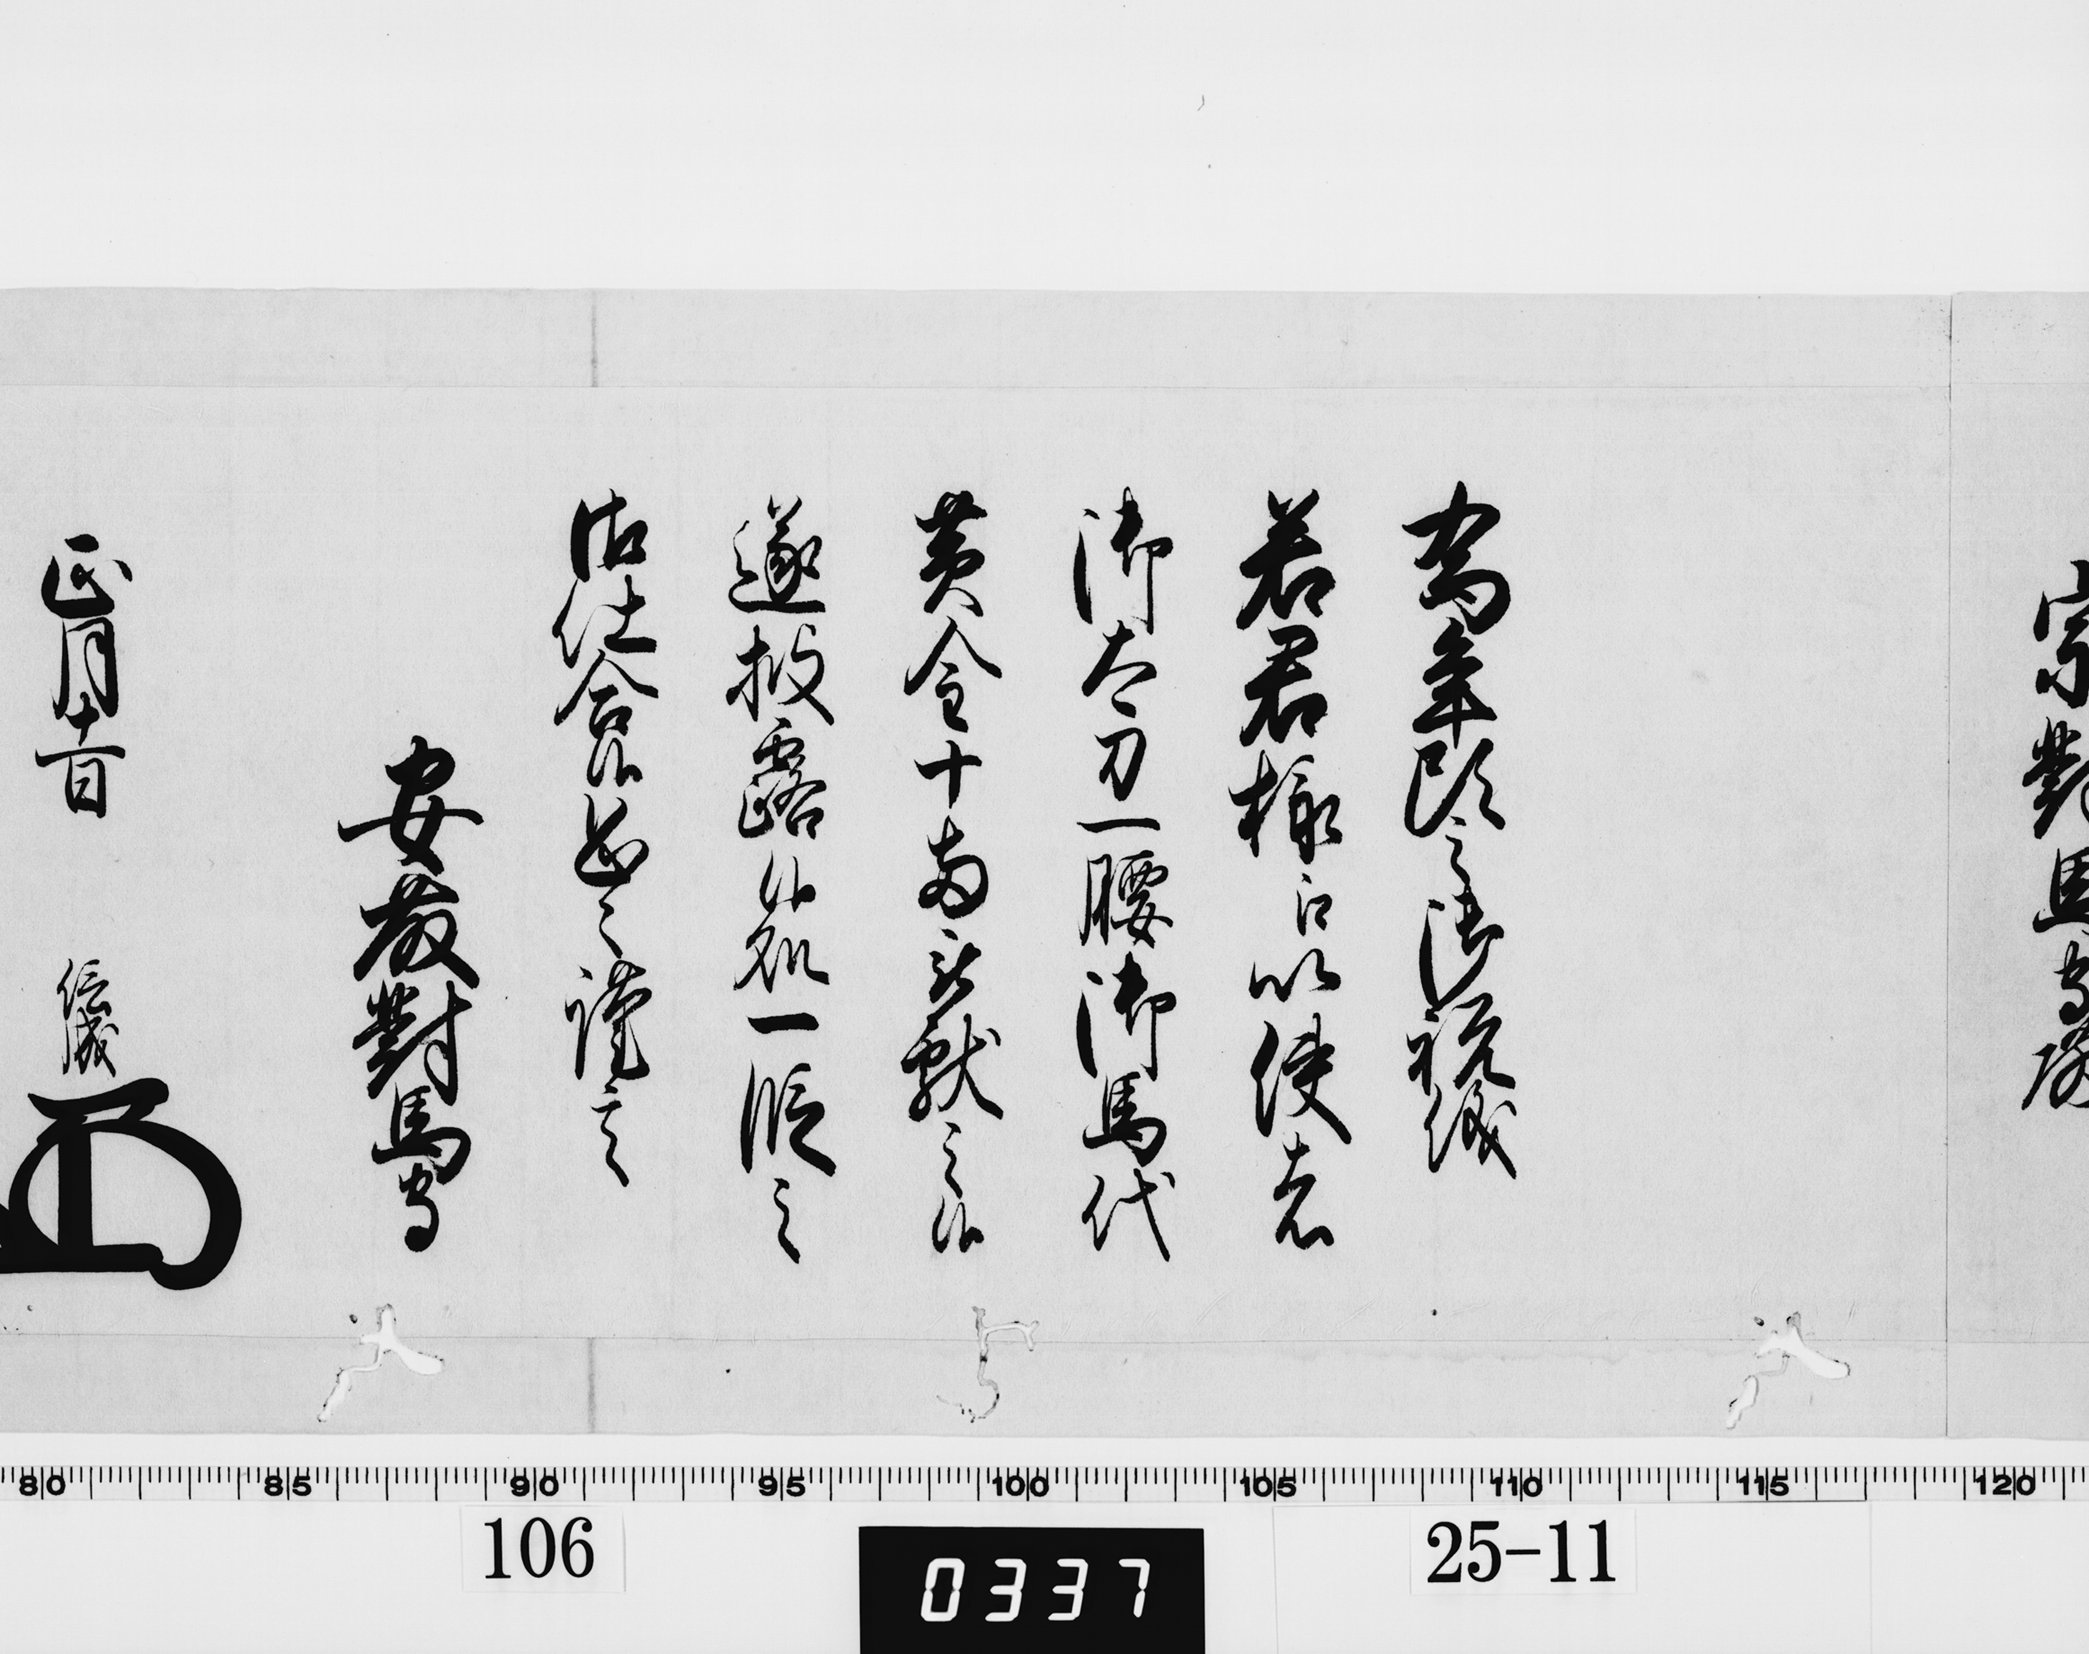 宗對馬守殿
為年頭之御祝儀
若君様江以使者
御太刀一腰御馬代
黄金十両被献之候
遂披露候処一段之
御仕合候恐々謹言
安藤對馬守
正月十一日 信成
80 85 90 95 100 105 110 115 120
106 0337 25-11